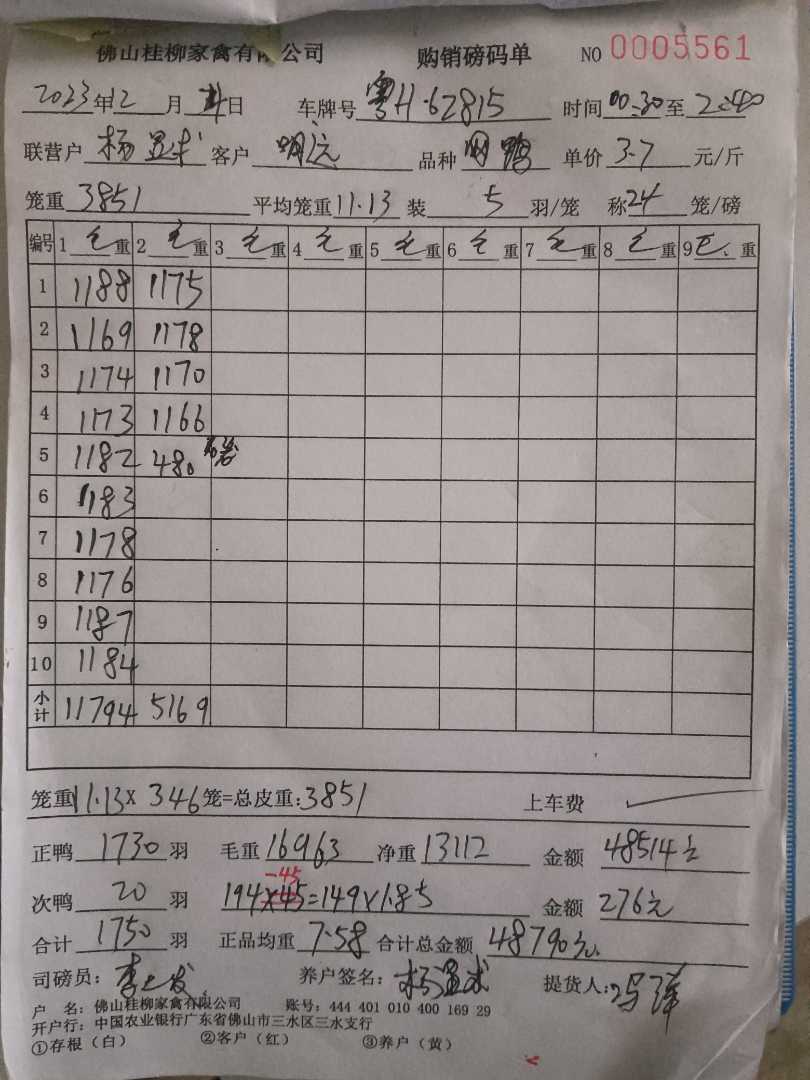 佛山桂柳家禽有限公司 购销磅码单 NO 0005561
2023年12月21日 车牌号 粤H·62815 时间 00:30 至 2:40
联营户 杨显球 客户 明远 品种 网鸭 单价 3.7 元/斤
笼重 3851 平均笼重 11.13 装 5 羽/笼 称 24 笼/磅
编号 1 毛重 2 毛重 3 毛重 4 毛重 5 毛重 6 毛重 7 毛重 8 毛重 9 毛重
1 1188 1175
2 1169 1178
3 1174 1170
4 1173 1166
5 1182 480
6 1183
7 1178
8 1176
9 1187
10 1184
小计 11794 5169
笼重 11.13 X 346 笼=总皮重:3851 上车费
正鸭 1730 羽 毛重 16963 净重 13112 金额 48514元
-45
次鸭 20 羽 194X45=149X1.85 金额 276元
合计 1750 羽 正品均重 7.58 合计总金额 48790元
司磅员: 养户签名: 杨显球 提货人: 冯泽
户 名: 佛山桂柳家禽有限公司 账号: 444 401 010 400 169 29
开户行: 中国农业银行广东省佛山市三水区三水支行
①存根(白) ②客户(红) ③养户(黄)